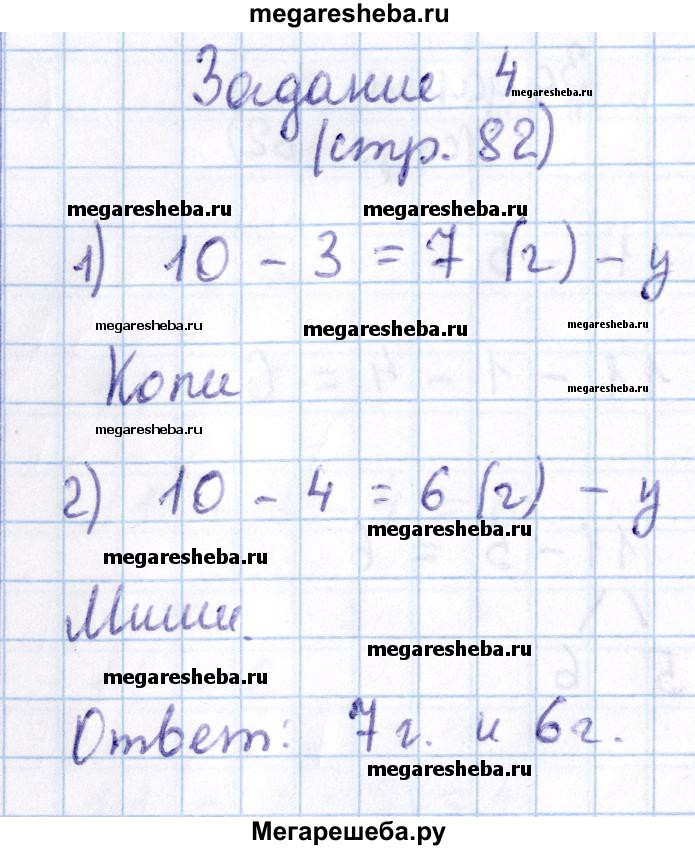 megaresheba.ru
Задание 4
megaresheba.ru
(стр. 82)
megaresheba.ru megaresheba.ru
1) 10 - 3 = 7 (г) - у
megaresheba.ru megaresheba.ru megaresheba.ru
Копи
megaresheba.ru
megaresheba.ru
2) 10 - 4 = 6 (г) - у
megaresheba.ru
megaresheba.ru
Миши.
megaresheba.ru
megaresheba.ru
Ответ: 7 г. и 6 г.
megaresheba.ru
Мегарешеба.ру